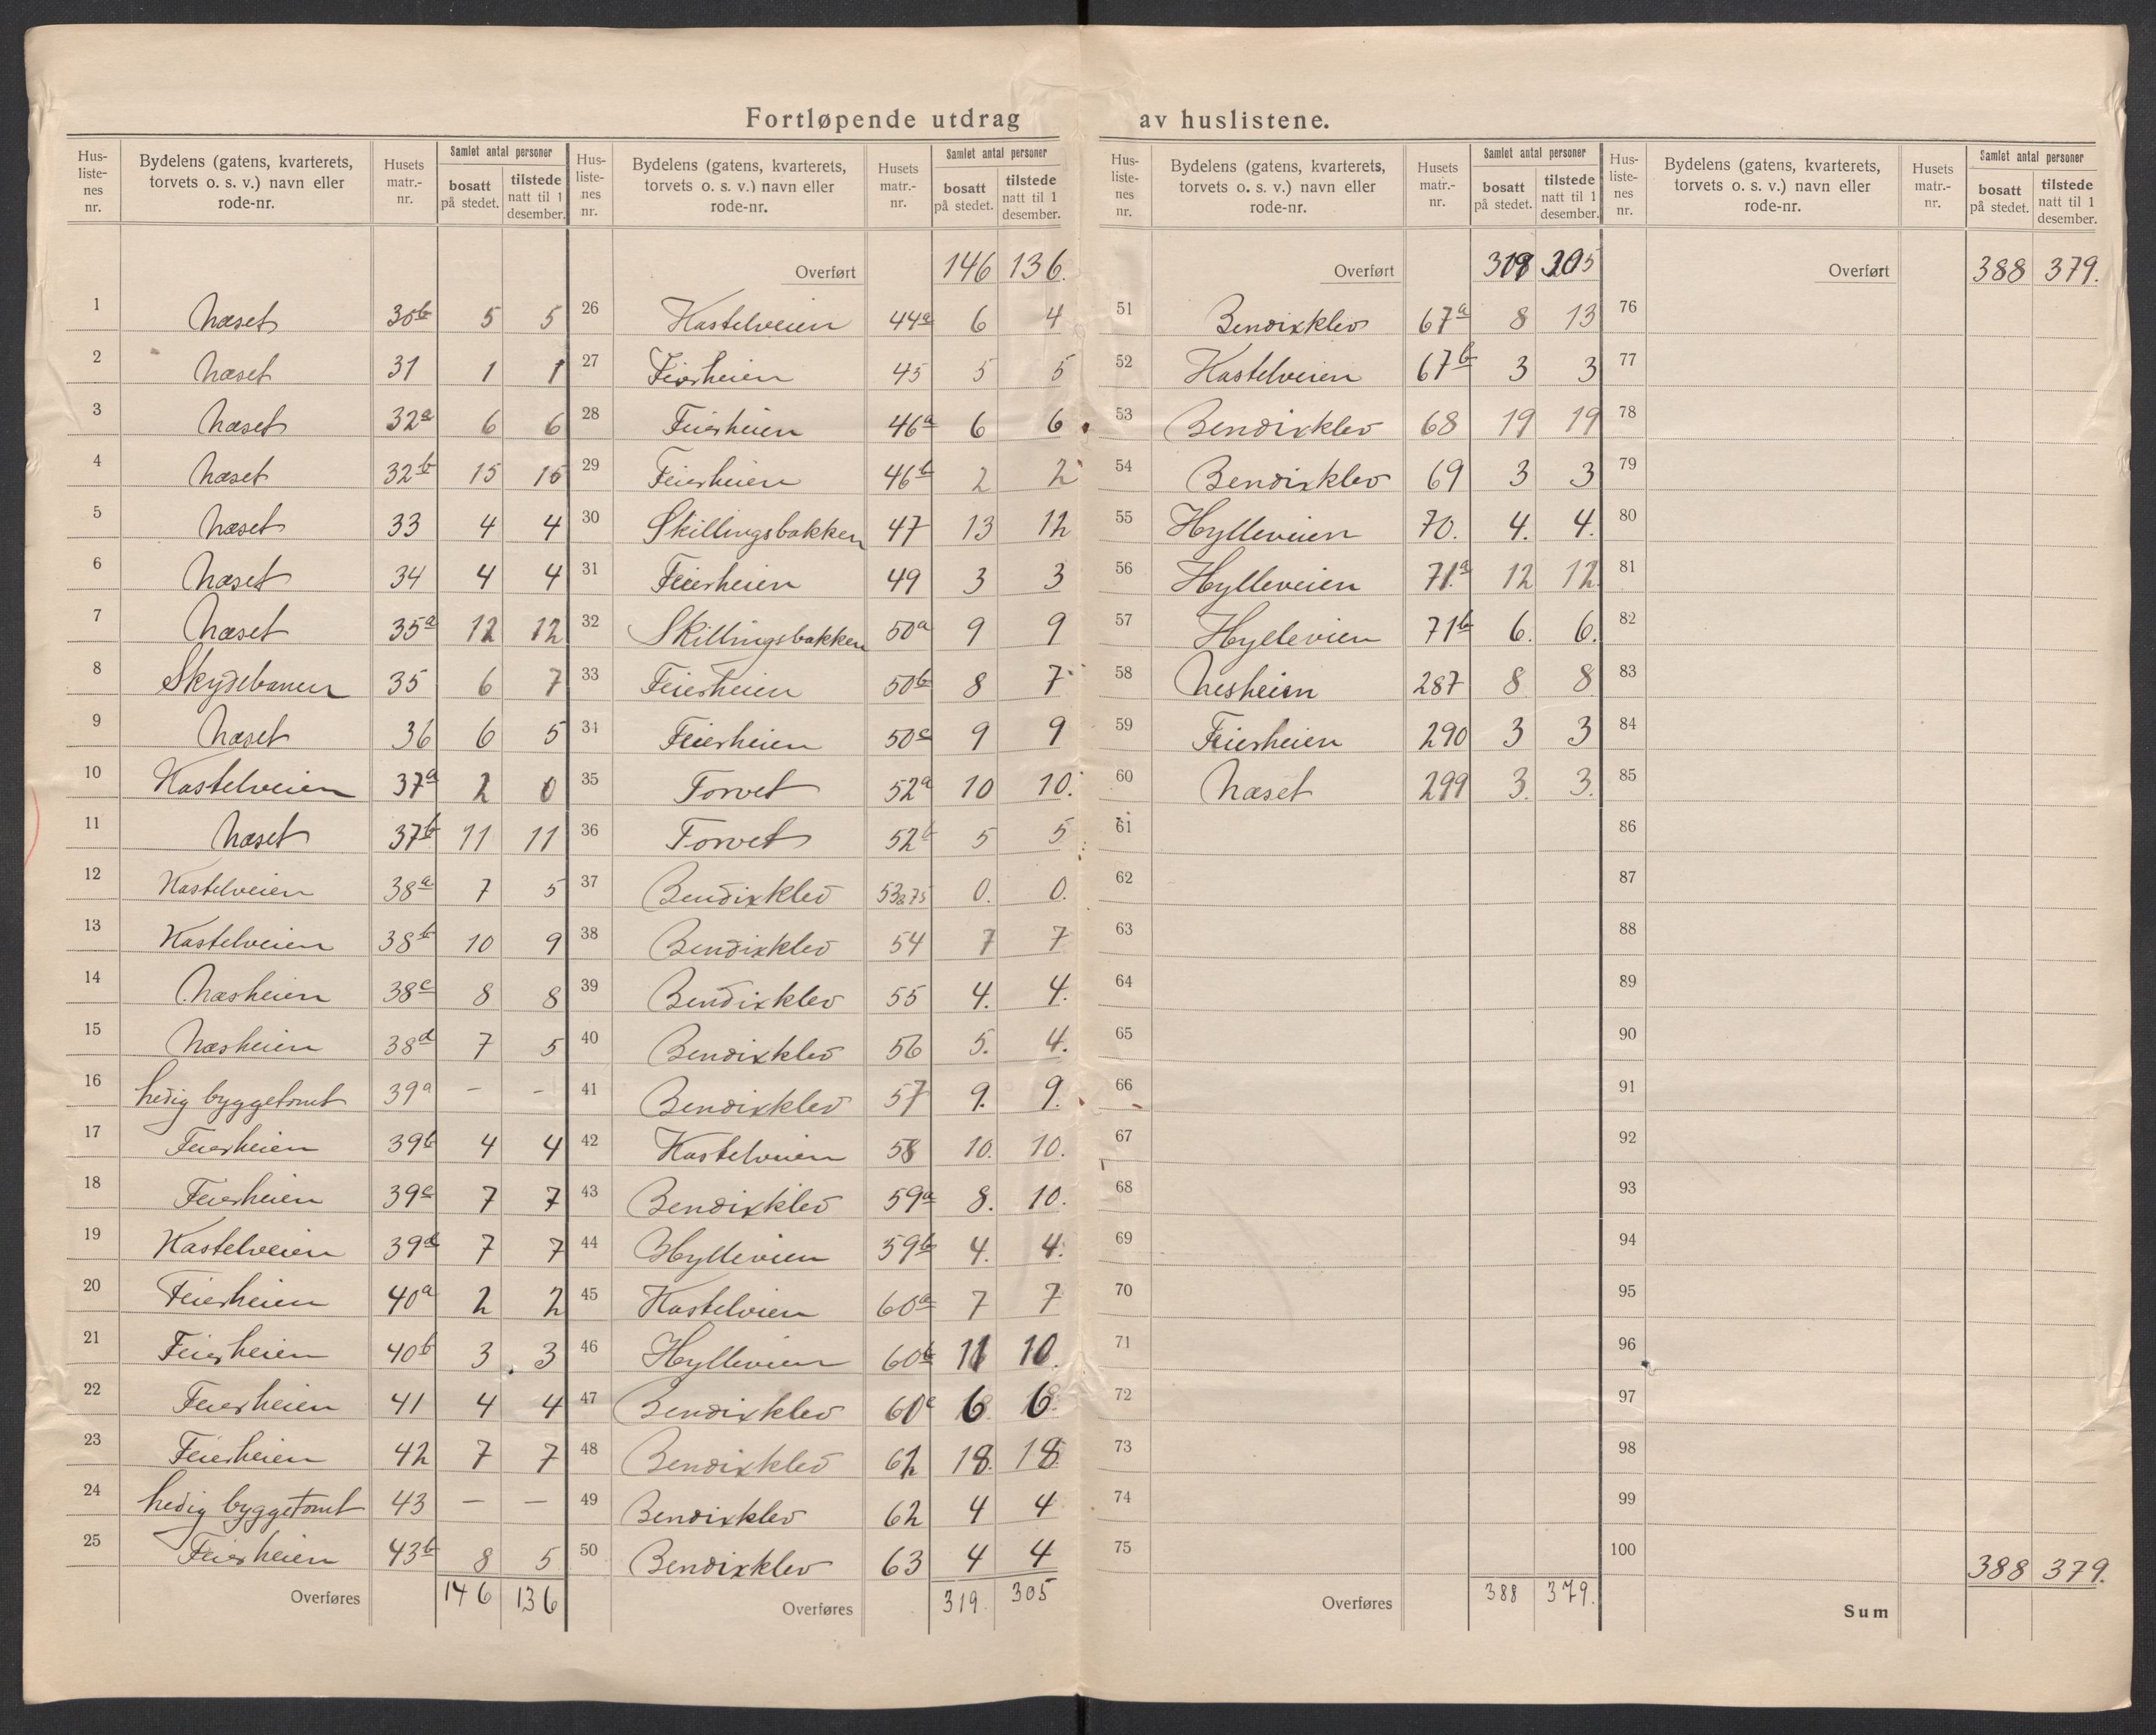 Fortløpende utdrag av huslistene.
Hus-listenes nr. | Bydelens (gatens, kvarterets, torvets o. s. v.) navn eller rode-nr. | Husets matr.-nr. | Samlet antal personer | bosatt på stedet. | tilstede natt til 1 desember.
1 Næset 30b 5 5
2 Næset 31 1 1
3 Næset 32a 6 6
4 Næset 32b 15 15
5 Næset 33 4 4
6 Næset 34 4 4
7 Næset 35a 12 12
8 Skydebanen 35 6 7
9 Næset 36 6 5
10 Kastelveien 37a 2 0
11 Næset 37b 11 11
12 Kastelveien 38a 7 5
13 Kastelveien 38b 10 9
14 Næsheien 38c 8 8
15 Næsheien 38d 7 5
16 Ledig byggetomt 39a - -
17 Feierheien 39b 4 4
18 Feierheien 39c 7 7
19 Kastelveien 39d 7 7
20 Feierheien 40a 2 2
21 Feierheien 40b 3 3
22 Feierheien 41 4 4
23 Feierheien 42 7 7
24 Ledig byggetomt 43 — —
25 Feierheien 43b 8 5
Overføres 146 136
Hus-listenes nr. | Bydelens (gatens, kvarterets, torvets o. s. v.) navn eller rode-nr. | Husets matr.-nr. | Samlet antal personer | bosatt på stedet. | tilstede natt til 1 desember.
Overført 146 136.
26 Kastelveien 44a 6 4
27 Feierheien 45 5 5
28 Feierheien 46a 6 6
29 Feierheien 46b 2 2
30 Skillingsbakken 47 13 12
31 Feierheien 49 3 3
32 Skillingsbakken 50a 9 9
33 Feierheien 50b 8 7
34 Feierheien 50c 9 9
35 Torvet 52a 10 10.
36 Torvet 52b 5 5
37 Bendixklev 53&75 0. 0.
38 Bendixklev 54 7 7
39 Bendixklev 55 4. 4.
40 Bendixklev 56 5. 4.
41 Bendixklev 57 9. 9.
42 Kastelveien 58 10. 10.
43 Bendixklev 59a 8. 10.
44 Hylleveien 59b 4. 4.
45 Kastelveien 60a 7 7
46 Hylleveien 60b 11 10.
47 Bendixklev 60c 6 6
48 Bendixklev 61 18. 18
49 Bendixklev 62 4 4
50 Bendixklev 63 4 4
Overføres 319. 305
Hus-listenes nr. | Bydelens (gatens, kvarterets, torvets o. s. v.) navn eller rode-nr. | Husets matr.-nr. | Samlet antal personer | bosatt på stedet. | tilstede natt til 1 desember.
Overført 319 305
51 Bendixklev 67a 8 13
52 Kastelveien 67b 3 3
53 Bendixklev 68 19 19
54 Bendixklev 69 3 3
55 Hylleveien 70. 4. 4.
56 Hylleveien 71.a 12 12
57 Hylleveien 71b 6. 6.
58 Nesheien 287 8 8
59 Feierheien 290 3 3
60 Næset 299 3. 3.
61
62
63
64
65
66
67
68
69
70
71
72
73
74
75
Overføres 388 379.
Hus-listenes nr. | Bydelens (gatens, kvarterets, torvets o. s. v.) navn eller rode-nr. | Husets matr.-nr. | Samlet antal personer | bosatt på stedet. | tilstede natt til 1 desember.
Overført 388 379.
76
77
78
79
80
81
82
83
84
85
86
87
88
89
90
91
92
93
94
95
96
97
98
99
100
388 379.
Sum